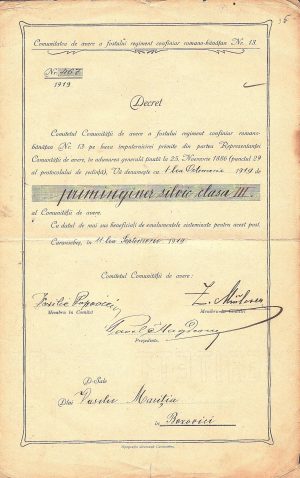 Comunitatea de avere a fostului regiment confiniar romano-bănățan Nr. 13
Nr. 467
1919
Decret
Comitetul Comunității de avere a fostului regiment confiniar romano-
bănățan Nr. 13 pe baza împuternicirii primite din partea Reprezentanței
Comunității de avere, în adunarea generală ținută la 25. Noemvrie 1880 (punctul 29
al protocolului de ședință), Vă denumește cu 1 lea Octomvrie 1919 de
priminginer silvic clasa III.
al Comunității de avere.
Cu datul de mai sus beneficiați de emolumentele sistemizate pentru acest post.
Caransebeș, în 11 lea Septemvrie 1919
Comitetul Comunității de avere:
Vasilie Popovici
Membru în Comitet
Membru în Comitet
Pavel Magdescu
Președinte
D-Sale
Dlui Vasiliu Marițiu
în Bozovici